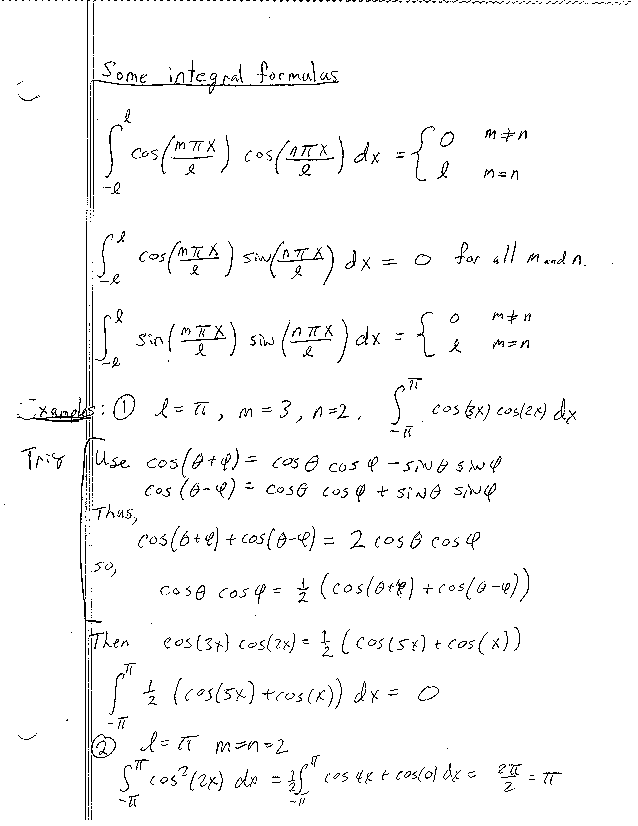 Some integral formulas
∫_{-l}^{l} cos(mπx/l) cos(nπx/l) dx = { 0 m≠n
l m=n
∫_{-l}^{l} cos(mπx/l) sin(nπx/l) dx = 0 for all m and n.
∫_{-l}^{l} sin(mπx/l) sin(nπx/l) dx = { 0 m≠n
l m=n
Examples: ① l=π, m=3, n=2. ∫_{-π}^{π} cos(3x) cos(2x) dx
Trig Use cos(θ+φ) = cosθ cosφ - sinθ sinφ
cos(θ-φ) = cosθ cosφ + sinθ sinφ
Thus,
cos(θ+φ) + cos(θ-φ) = 2 cosθ cosφ
so,
cosθ cosφ = 1/2 (cos(θ+φ) + cos(θ-φ))
Then cos(3x) cos(2x) = 1/2 (cos(5x) + cos(x))
∫_{-π}^{π} 1/2 (cos(5x) + cos(x)) dx = 0
② l=π m=n=2
∫_{-π}^{π} cos²(2x) dx = 1/2 ∫_{-π}^{π} cos 4x + cos(0) dx = 2π/2 = π